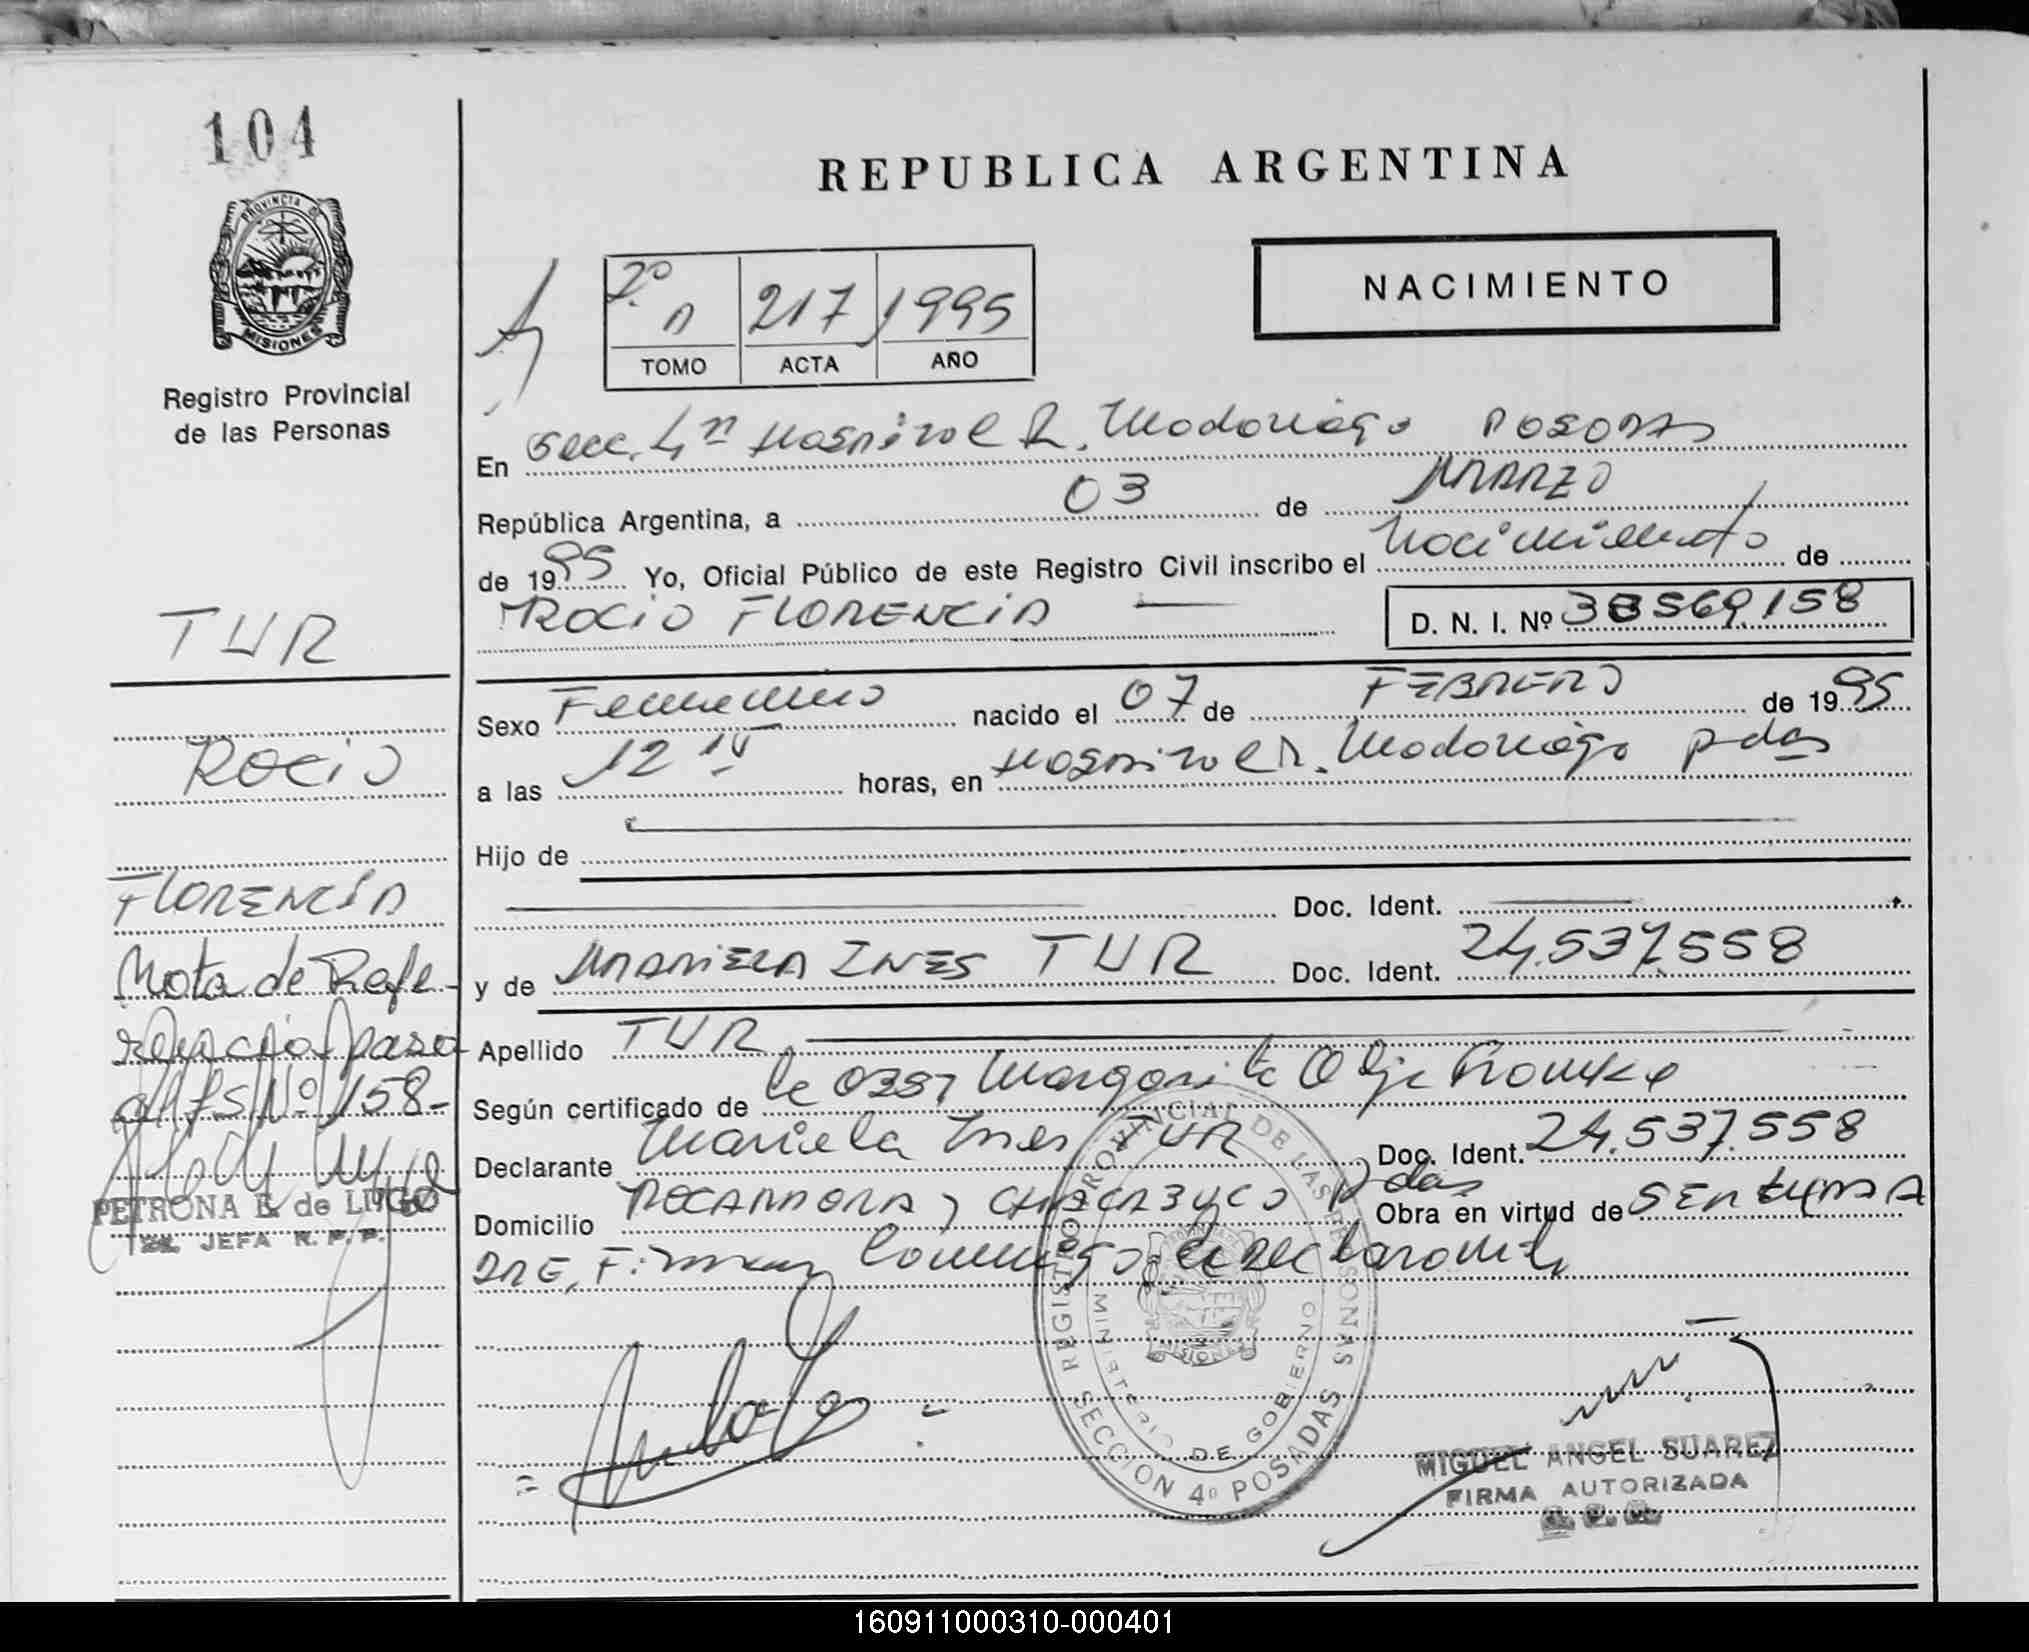 104
PROVINCIA DE
MISIONES
Registro Provincial
de las Personas
TUR
Rocio
FLORENCIA
Nota de Refe-
rencia pasa
al Fs Nº 158-
PETRONA E. de LUGO
2a. JEFA R. P. P.
REPUBLICA ARGENTINA
NACIMIENTO
2º A 217 1995
TOMO ACTA AÑO
En Secc. 4ª Hospital R. Madariaga POSADAS
República Argentina, a 03 de MARZO
de 1995 Yo, Oficial Público de este Registro Civil inscribo el Nacimiento de
ROCIO FLORENCIA — D. N. I. Nº 38569.158
Sexo Femenino nacido el 07 de FEBRERO de 1995
a las 12 15 horas, en Hospital R. Madariaga Pdas
Hijo de
Doc. Ident.
y de MARIELA INES TUR Doc. Ident. 24.537.558
Apellido TUR
Según certificado de la Margarita
Declarante Mariela Ines TUR Doc. Ident. 24.537.558
Domicilio ROCAMORA y CHACABUCO Pdas Obra en virtud de SER LA MADRE
Firman conmigo la declarante
REGISTRO PROVINCIAL DE LAS PERSONAS
MINISTERIO DE GOBIERNO
MISIONES
SECCION 4º POSADAS
MIGUEL ANGEL SUAREZ
FIRMA AUTORIZADA
160911000310-000401